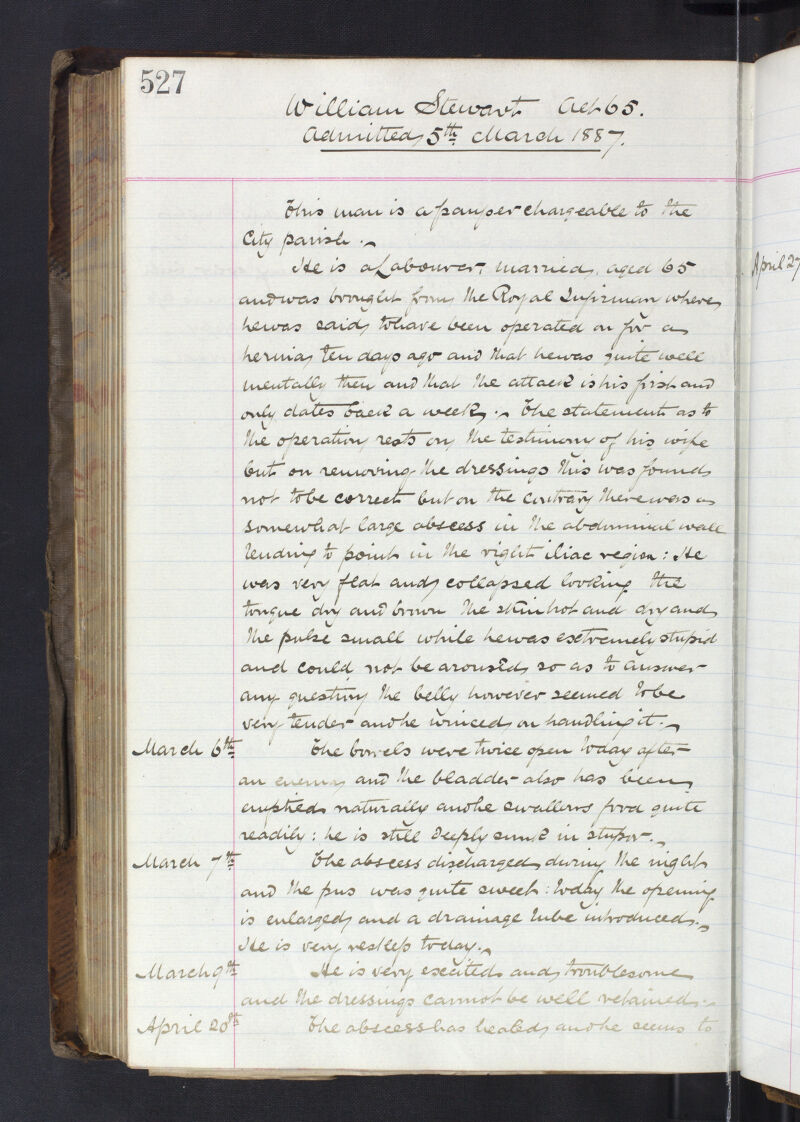 527
William Stewart Aet 65.
Admitted 5th March 1887.
This man is a pauper chargeable to the
City parish.
He is a Labourer, married, aged 65
and was brought from the Royal Infirman where
he was said to have been operated on for a
hernia ten days ago and that he was quite well
mentally then and that the attack is his first and
only dates back a week. The statement as to
the operation rests on the testimony of his wife
but on removing the dressings this was found
not to be correct but on the contrary there was a
somewhat large abscess in the abdominal wall
tending to point in the right iliac region: He
was very flat and collapsed looking the
tongue dry and brown the skin hot and dry and
the pulse small while he was extremely stupid
and could not be aroused so as to answer
any question the belly however seemed to be
very tender and he winced on handling it.
March 6th The bowels were twice open today after
an enema and the bladder also has been
emptied naturally and he swallows food quite
readily: he is still deeply sunk in stupor.
March 7th The abscess discharged during the night
and the pus was quite sweet: today the opening
is enlarged and a drainage tube introduced.
He is very restless today.
March 9th He is very excited and troublesome
and the dressings cannot be well retained.
April 20th The abscess has healed and he seems to
April 27